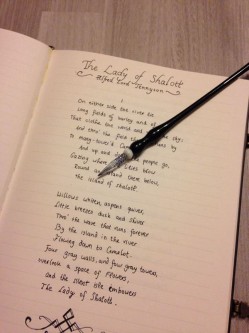 The Lady of Shalott
Alfred Lord Tennyson
I
On either side the river lie
Long fields of barley and of rye,
That clothe the wold and meet the sky;
And thro' the field the road runs by
To many-tower'd Camelot;
And up and down the people go,
Gazing where the lilies blow
Round an island there below,
The island of Shalott.
Willows whiten, aspens quiver,
Little breezes dusk and shiver
Thro' the wave that runs forever
By the island in the river
Flowing down to Camelot.
Four gray walls, and four gray towers,
Overlook a space of flowers,
And the silent isle embowers
The Lady of Shalott.